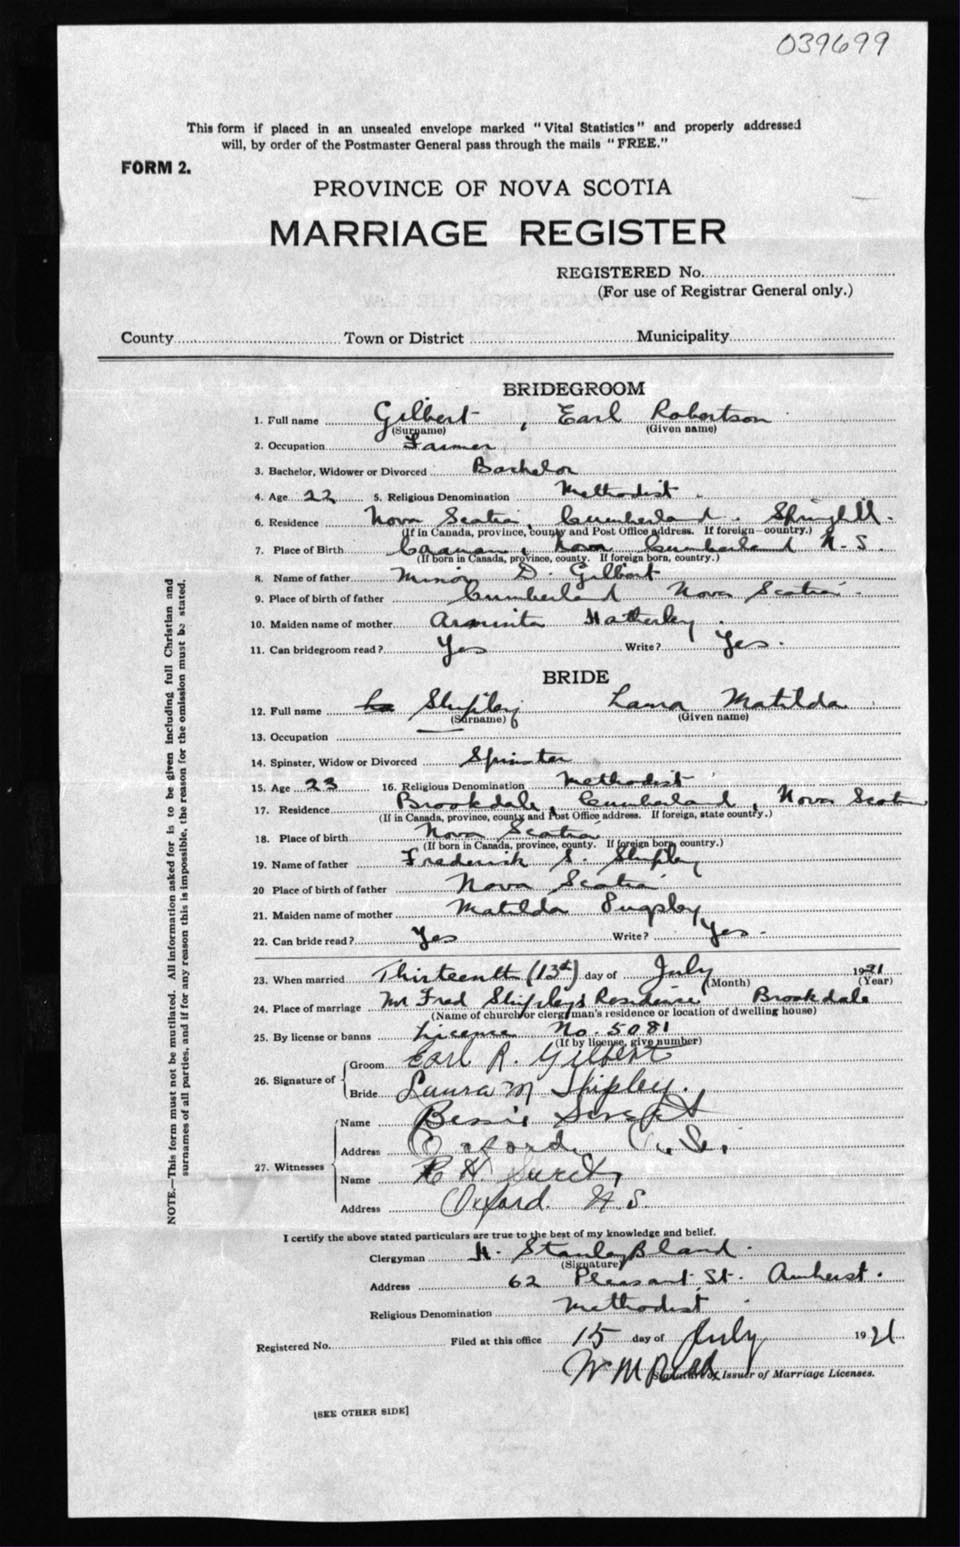 039699
This form if placed in an unsealed envelope marked "Vital Statistics" and properly addressed
will, by order of the Postmaster General pass through the mails "FREE."
FORM 2.
PROVINCE OF NOVA SCOTIA
MARRIAGE REGISTER
REGISTERED No.
(For use of Registrar General only.)
County Town or District Municipality
BRIDEGROOM
1. Full name Gilbert, Earl Robertson
(Surname) (Given name)
2. Occupation Farmer
3. Bachelor, Widower or Divorced Bachelor
4. Age 22 5. Religious Denomination Methodist
6. Residence Nova Scotia, Cumberland. Springhill.
(If in Canada, province, county and Post Office address. If foreign country.)
7. Place of Birth Cumberland N.S.
(If born in Canada, province, county. If foreign born, country.)
8. Name of father Minor D. Gilbert
9. Place of birth of father Cumberland Nova Scotia.
10. Maiden name of mother Hatherley.
11. Can bridegroom read? Yes Write? Yes.
BRIDE
12. Full name Shipley Laura Matilda
(Surname) (Given name)
13. Occupation
14. Spinster, Widow or Divorced Spinster
15. Age 23 16. Religious Denomination Methodist
17. Residence Brookdale, Cumberland, Nova Scotia
(If in Canada, province, county and Post Office address. If foreign, state country.)
18. Place of birth Nova Scotia
(If born in Canada, province, county. If foreign born country.)
19. Name of father Frederick S. Shipley
20 Place of birth of father Nova Scotia
21. Maiden name of mother Matilda
22. Can bride read? Yes Write? Yes.
23. When married Thirteenth (13th) day of July 1921
(Month) (Year)
24. Place of marriage Mr Fred Shipley's Residence Brookdale
(Name of church or clergyman's residence or location of dwelling house)
25. By license or banns License No. 5081
(If by license, give number)
26. Signature of Groom Earl R. Gilbert
Bride Laura M Shipley.
27. Witnesses Name Bessie
Address Oxford
Name R H
Address Oxford. N.S.
I certify the above stated particulars are true to the best of my knowledge and belief.
Clergyman H. Stanley Bland.
(Signature)
Address 62 Pleasant St. Amherst.
Religious Denomination Methodist.
Registered No. Filed at this office 15 day of July 1921
W M
Signature of Issuer of Marriage Licenses.
[SEE OTHER SIDE]
NOTE.—This form must not be mutilated. All information asked for is to be given including full Christian and
surnames of all parties, and if for any reason this is impossible, the reason for the omission must be stated.